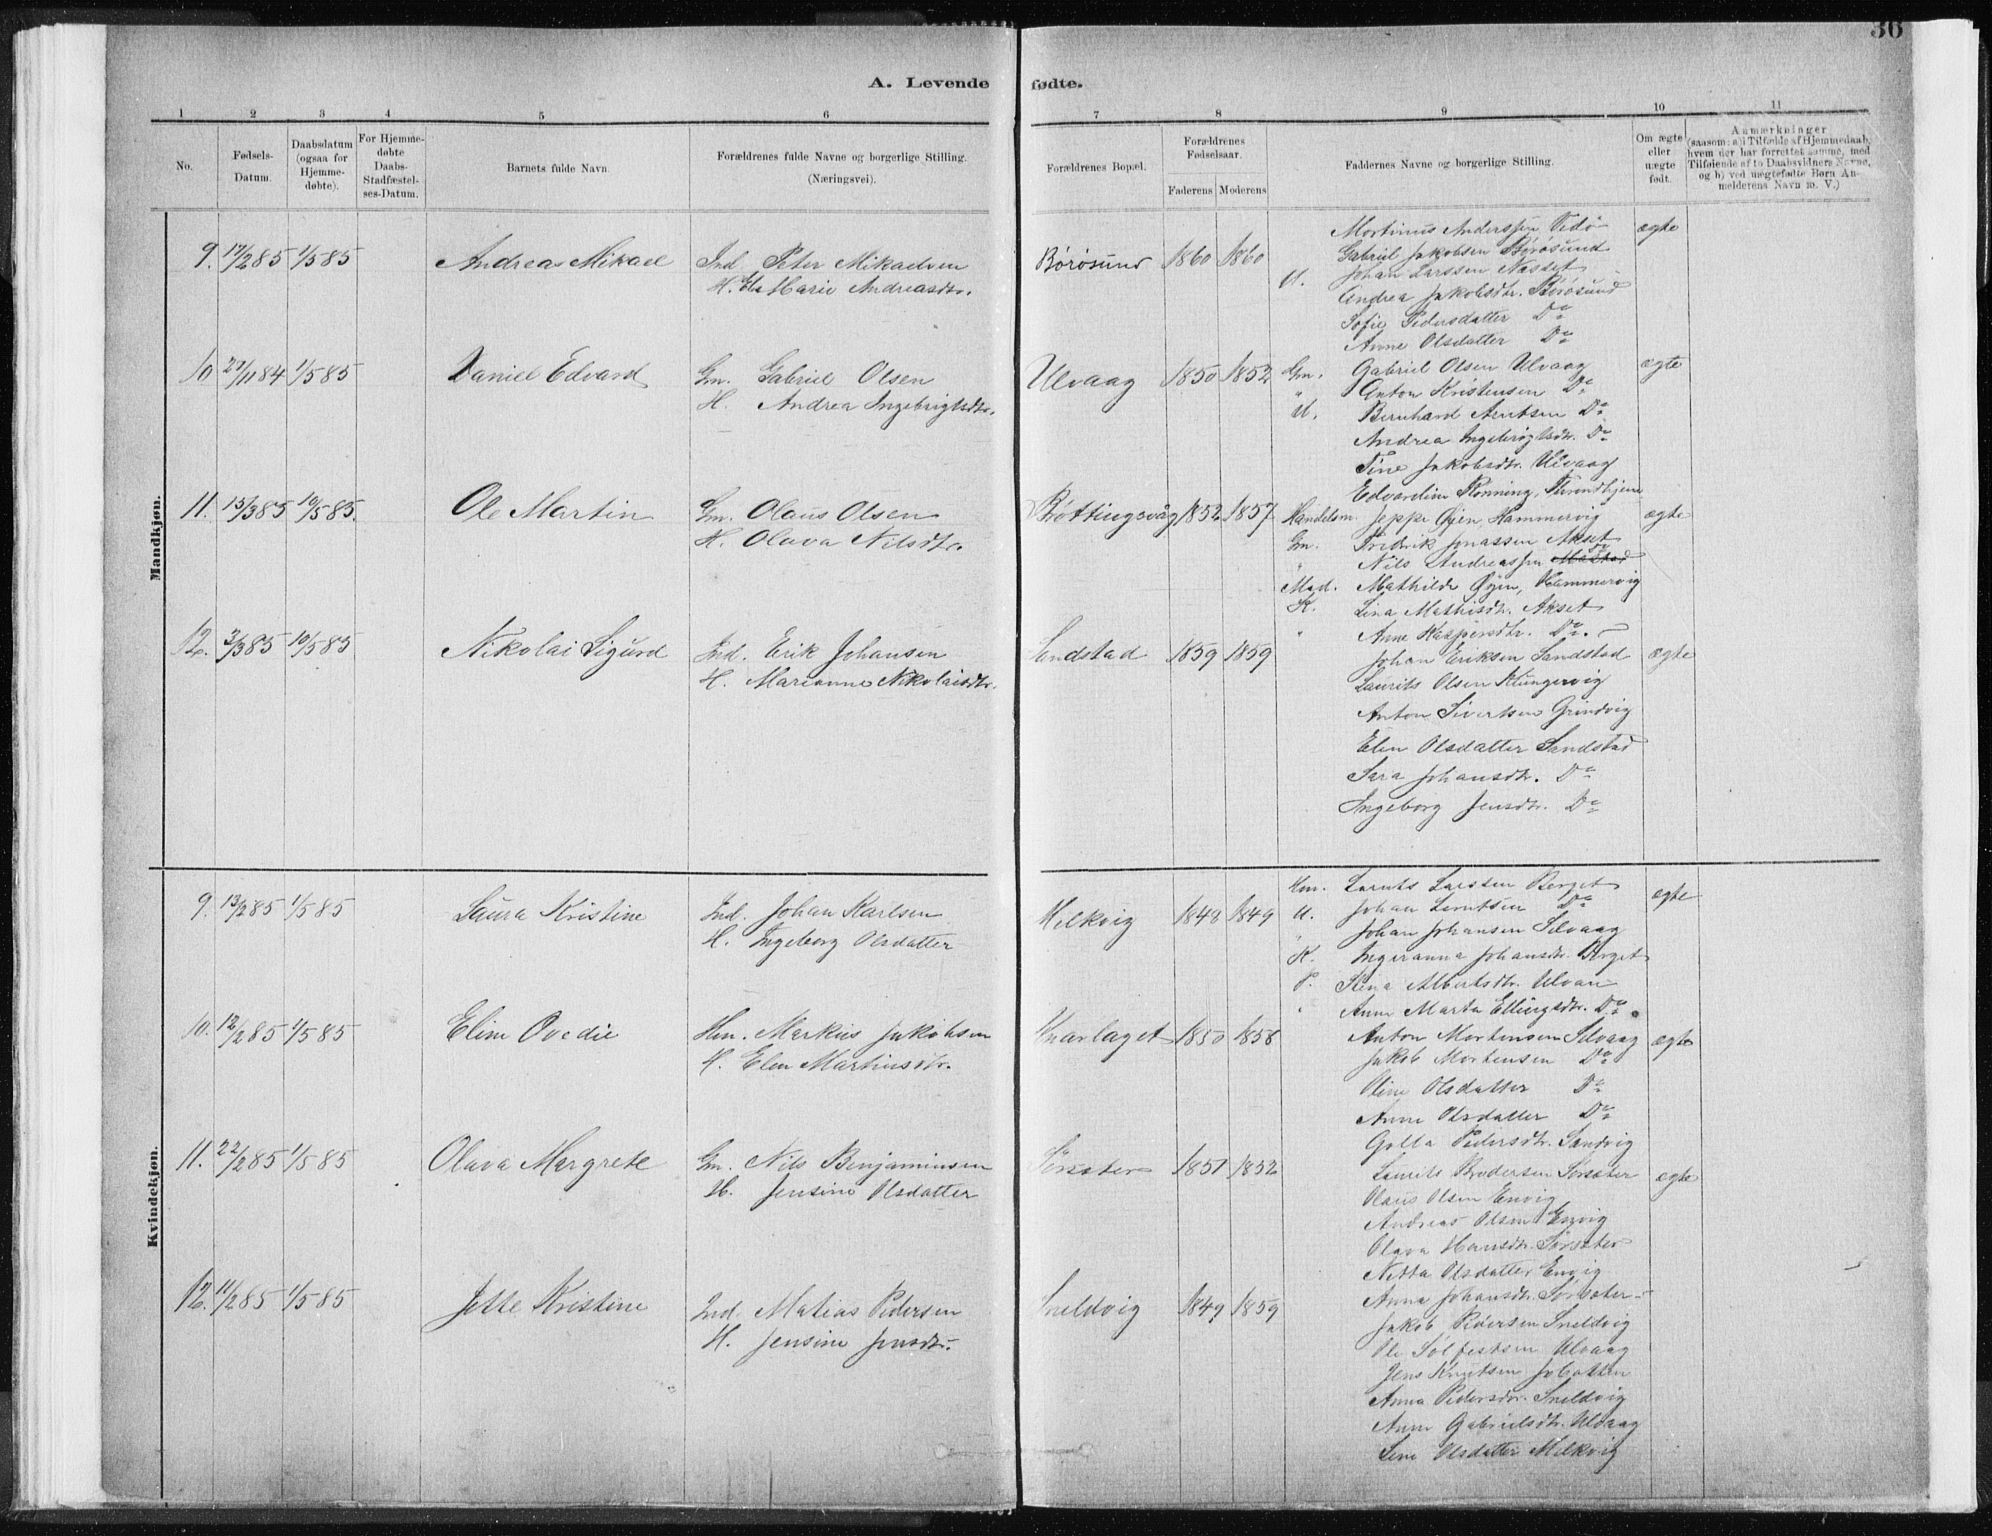 36
A. Levende fødte.
1 2 3 4 5 6 7 8 9 10 11
No.
Fødsels-Datum.
Daabsdatum (ogsaa for Hjemme-døbte).
For Hjemme-døbte Daabs-Stadfæstel-ses-Datum.
Barnets fulde Navn.
Forældrenes fulde Navne og borgerlige Stilling. (Næringsvei).
Forældrenes Bopæl.
Forældrenes Fødselsaar.
Faderens Moderens
Faddernes Navne og borgerlige Stilling.
Om ægte eller uægte født.
Anmærkninger (saasom: a) i Tilfælde af Hjemmedaab, hvem der har forrettet samme, med Tilføiende af to Daabsvidners Navne, og b) ved uægtefødte Børn An-melderens Navn m. V.)
Mandkjøn.
9. 17/2 85 1/5 85 Andreas Mikael Ind. Peter Mikaelsen Børøsund 1860 1860 ægte
H. Marie Andreasdtr.
Mortinus Anderssen Vedø
Gabriel Jakobsen Børøsund
U. Johan Larssen Nasset
Andrea Jakobsdtr. Børøsund
Sofie Pedersdatter Do
Anne Olsdatter Do
10 27/11 84 1/5 85 Daniel Edvard Gm. Gabriel Olsen Ulvaag 1850 1852 ægte
H. Andrea Ingebrigtsdtr.
Gm. Gabriel Olsen Ulvaag
" Anton Kristensen Do
U. Bernhard Arntsen Do
Andrea Ingebrigtsdtr. Do
Tine Jakobsdtr. Ulvaag
Edvardine Rønning, Throndhjem
11. 15/3 85 10/5 85. Ole Martin Gm. Olaus Olsen Bøttingsvåg 1852 1857 ægte
H. Olava Nilsdtr.
Handelsm. Jeppe Øyen, Hammervig
Gm. Fredrik Jonassen Akset
" Nils Andreassen Do
Mad. Mathilde Øyen, Hammervig
K. Lina Mathisdtr. Akset
" Anne Kaspersdtr. Do.
12. 3/3 85 10/5 85 Nikolai Sigurd Ind. Erik Johansen Sandstad 1859 1859 ægte
H. Marianne Nikolaisdtr.
Johan Eriksen Sandstad
Laurits Olsen Klungervig
Anton Sivertsen Grindvig
Elen Olsdatter Sandstad
Sara Johansdtr. Do
Ingeborg Jensdtr. Do
Kvindekjøn.
9. 13/2 85 1/5 85 Laura Kristine Ind. Johan Karlsen Melkvig 1848 1849 ægte
H. Ingeborg Olsdatter
Hm. Larnts Larssen Berget
U. Johan Larntsen Do
" Johan Johansen Selvaag
K. Ingeranna Johansdtr. Berget
P. Stena Albertsdtr. Ulvan
" Anne Marta Ellingsdtr. Do
10. 12/2 85 1/5 85 Eline Ovedie Hm. Markus Jakobsen Knarlaget 1850 1858 ægte
H. Elen Martinusdtr.
Anton Mortensen Selvaag
Jakob Mortensen Do
Oline Olsdatter Do
Anne Olsdatter Do
Golla Pedersdtr. Sandvig
11. 22/2 85 1/5 85 Olava Margrete Gm. Nils Benjaminsen Sørsæter 1851 1852 ægte
H. Jensine Olsdatter
Laurits Brodersen Sørsæter
Olaus Olsen Envig
Andreas Olsen Envig
Olava Hansdtr. Sørsæter
Netta Olsdatter Envig
Anna Johansdtr. Sørsæter
12. 11/2 85 1/5 85 Jette Kristine Ind. Matias Pedersen Sneldvig 1849 1859
H. Jensine Jonsdtr.
Jakob Pedersen Sneldvig
Ole Sølfestsen Ulvaag
Jens Knutsen Jobotten
Anna Pedersdtr. Sneldvig
Anne Gabrielsdtr. Ulvaag
Lene Olsdatter Melkvig